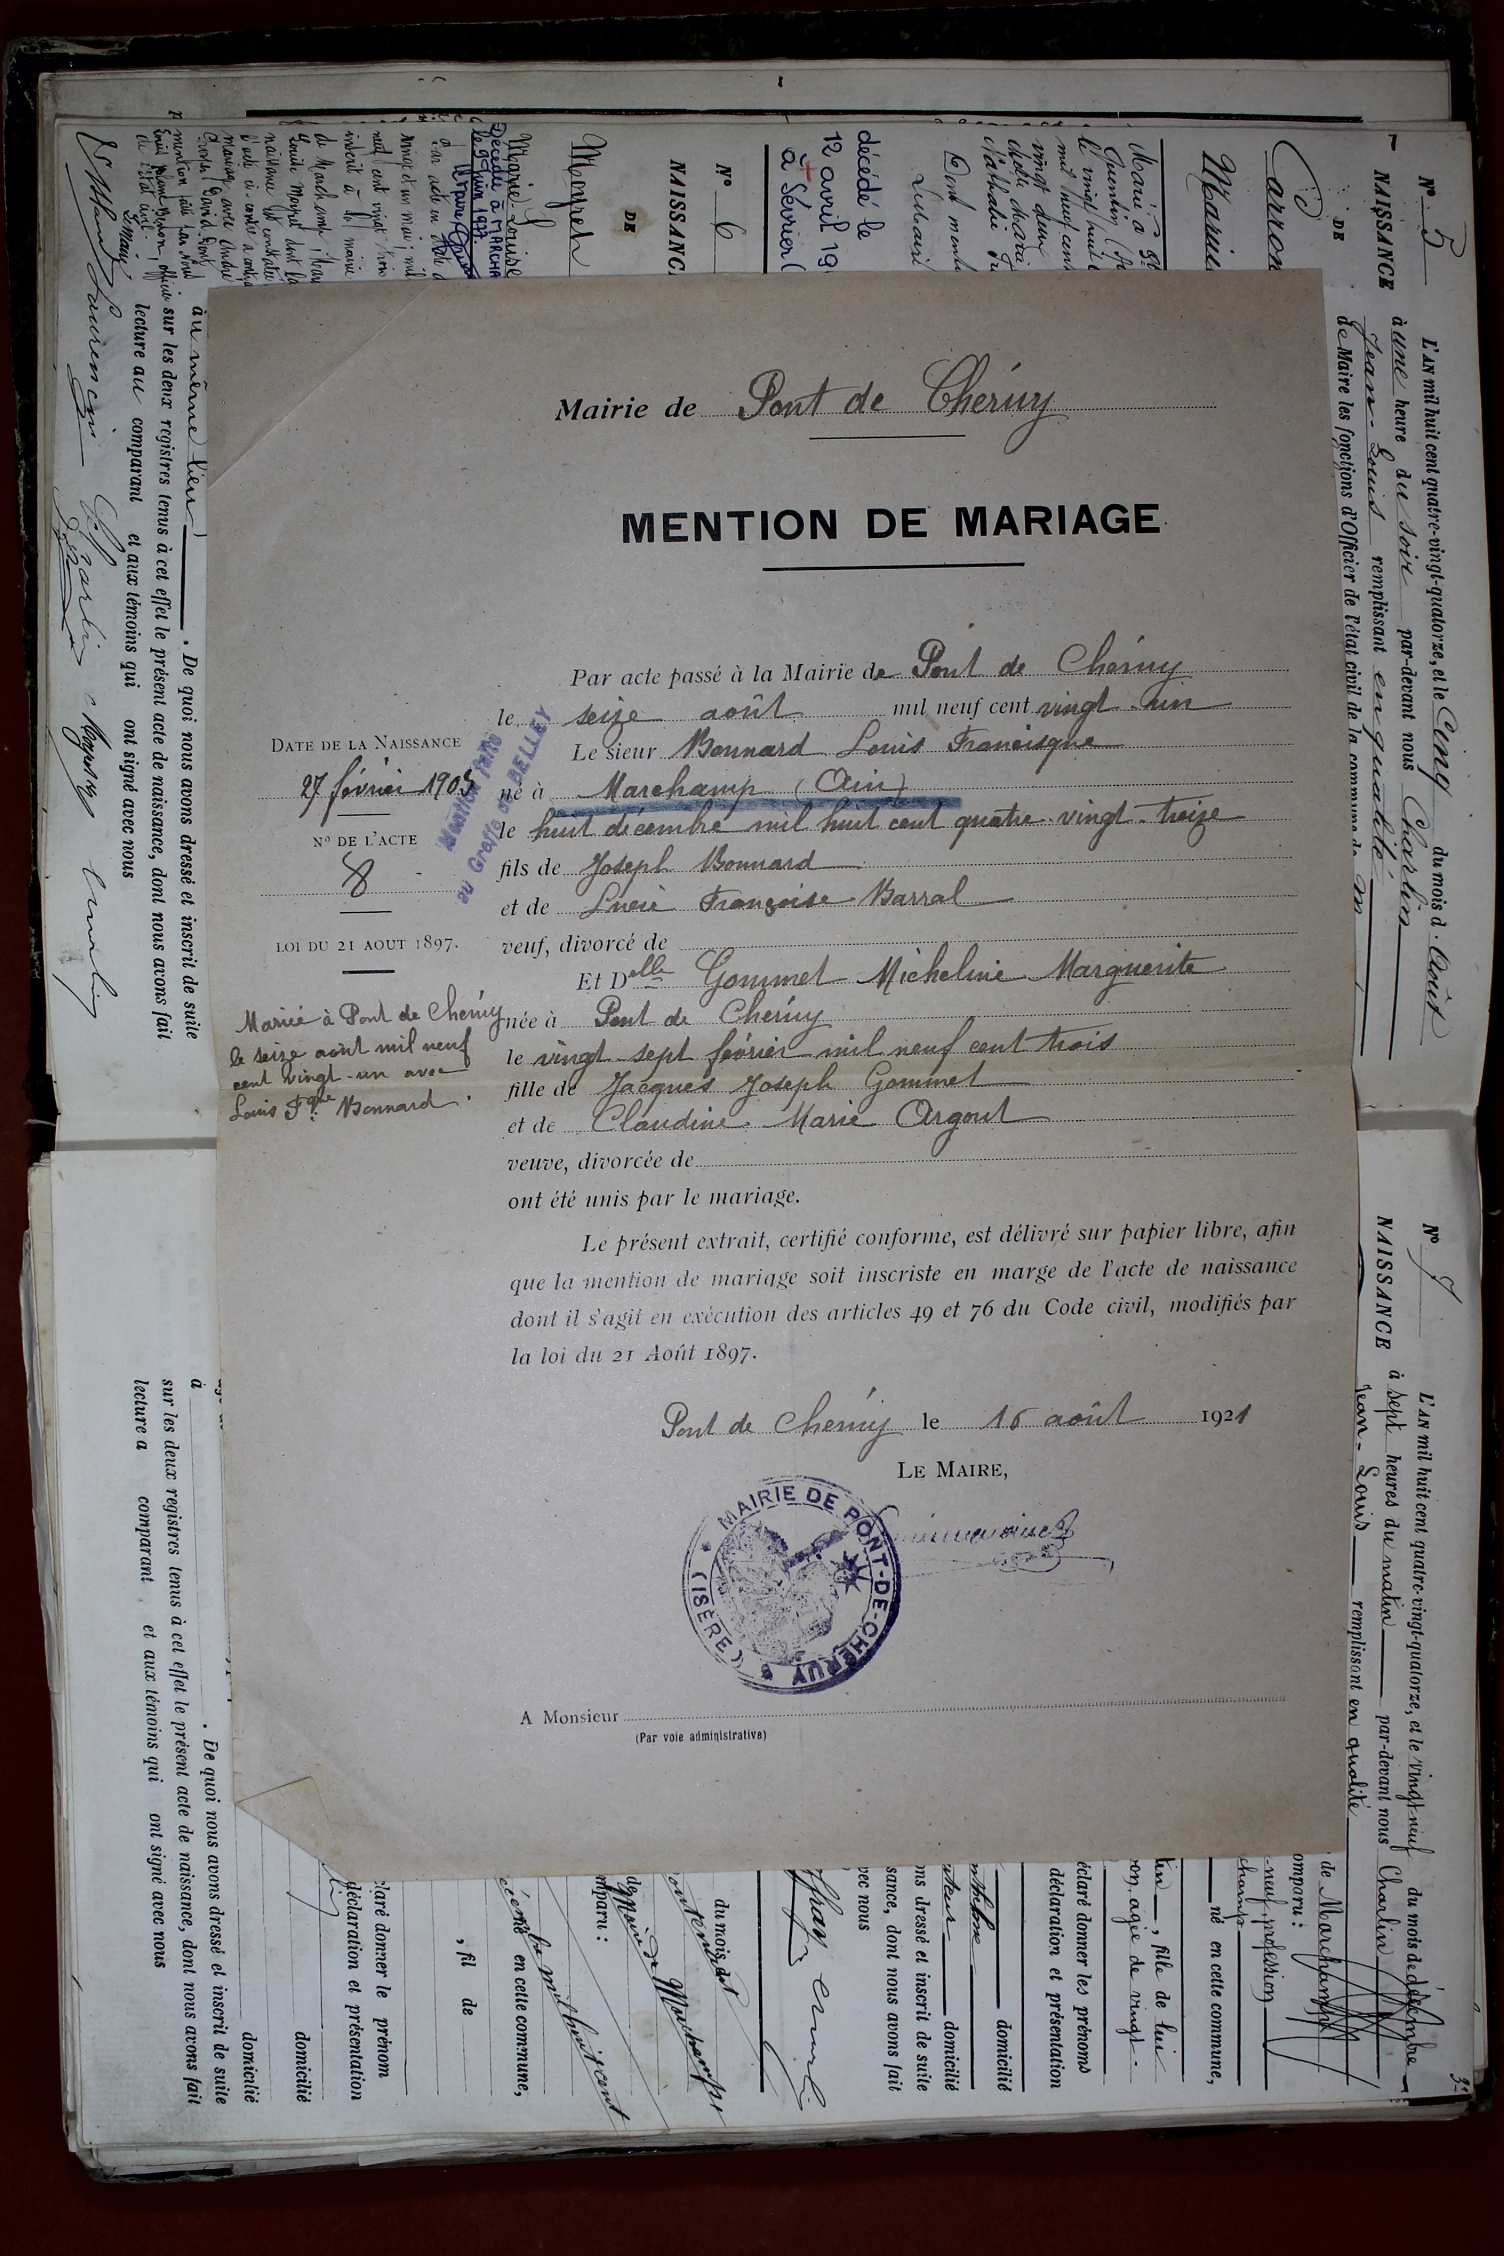 Mairie de Pont de Chéruy
MENTION DE MARIAGE
Par acte passé à la Mairie de Pont de Chéruy
le seize août mil neuf cent vingt-un
Le sieur Bonnard Louis Francisque
né à Marchamp (Ain)
le huit décembre mil huit cent quatre-vingt-treize
fils de Joseph Bonnard
et de Lucie Françoise Barral
veuf, divorcé de
Et Delle Gommet Micheline Marguerite
née à Pont de Chéruy
le vingt-sept février mil neuf cent trois
fille de Jacques Joseph Gommet
et de Claudine Marie Argout
veuve, divorcée de
ont été unis par le mariage.
Le présent extrait, certifié conforme, est délivré sur papier libre, afin
que la mention de mariage soit inscriste en marge de l'acte de naissance
dont il s'agit en exécution des articles 49 et 76 du Code civil, modifiés par
la loi du 21 Août 1897.
Pont de Chéruy le 16 août 1921
LE MAIRE,
MAIRIE DE PONT-DE-CHERUY
(ISÈRE)
A Monsieur
(Par voie administrative)
DATE DE LA NAISSANCE
27 février 1903
No DE L'ACTE
8
LOI DU 21 AOUT 1897.
Mariée à Pont de Chéruy
le seize août mil neuf
cent vingt-un avec
Louis Fque Bonnard.
Mention faite
au Greffe de BELLEY
No 5
NAISSANCE
DE
Carron
Marius
décédé le
12 avril 19
à Sévrier (
L'AN mil huit cent quatre-vingt-quatorze, et le Cinq du mois d'Août
à une heure du soir par-devant nous Charlin
Jean-Louis remplissant en qualité
de Maire les fonctions d'Officier de l'état civil de la commune de M
No 6
NAISSANC
DE
Meyret
Marie-Louise
Décédée à MARCHA
le 9 juin 1977
au même lieu. De quoi nous avons dressé et inscrit de suite
sur les deux registres tenus à cet effet le présent acte de naissance, dont nous avons fait
lecture au comparant et aux témoins qui ont signé avec nous
No 7
NAISSANCE
L'AN mil huit cent quatre-vingt-quatorze, et le vingt-neuf du mois de décembre
à sept heures du matin par-devant nous Charlin
Jean-Louis remplissant en qualité
de Marchamp
omparu :
-neuf, profession
champ
né en cette commune,
, fille de lui
on, agée de vingt-
éclaré donner les prénoms
déclaration et présentation
domicilié
domicilié
ns dressé et inscrit de suite
sance, dont nous avons fait
vec nous
du mois de
mparu :
en cette commune,
, fil de
claré donner le prénom
déclaration et présentation
domicilié
domicilié
à . De quoi nous avons dressé et inscrit de suite
sur les deux registres tenus à cet effet le présent acte de naissance, dont nous avons fait
lecture a comparant et aux témoins qui ont signé avec nous